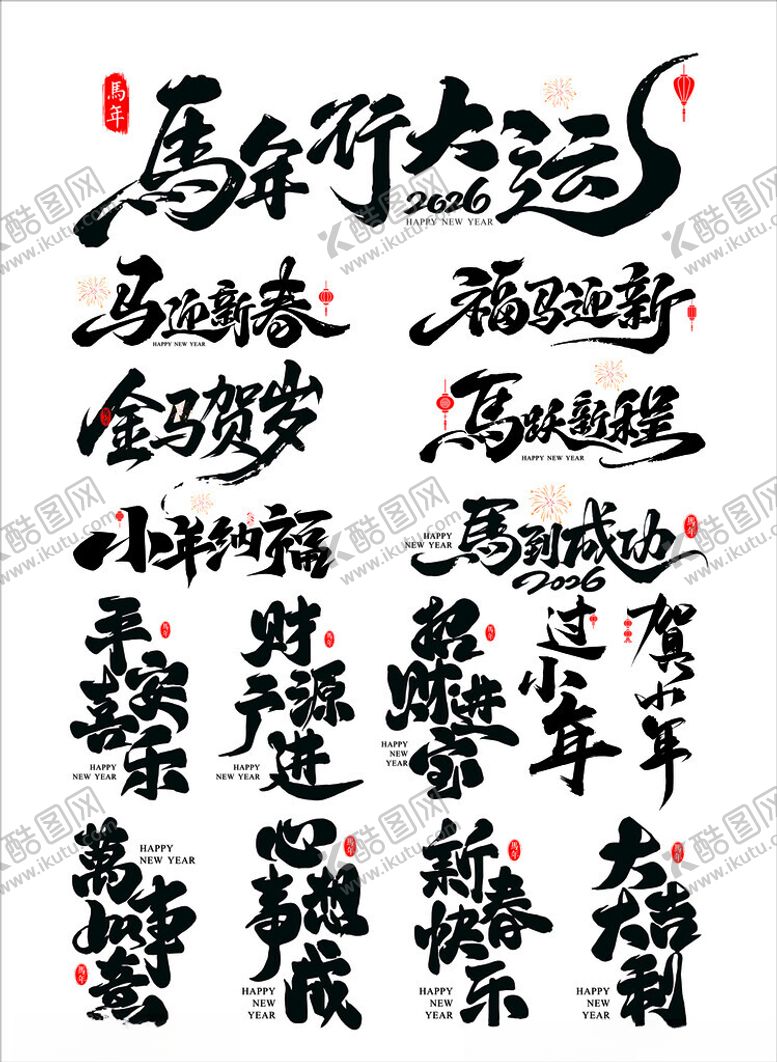 馬年
馬年行大运
2026
HAPPY NEW YEAR
马迎新春
HAPPY NEW YEAR
福马迎新
金马贺岁
馬跃新程
HAPPY NEW YEAR
小年纳福
HAPPY
NEW YEAR
馬到成功
2026
馬年
平安喜乐
馬年
HAPPY
NEW YEAR
财源广进
馬年
HAPPY
NEW YEAR
招财进宝
馬年
HAPPY
NEW
YEAR
过小年
贺小年
萬事如意
HAPPY
NEW YEAR
馬年
心想事成
馬年
HAPPY
NEW
YEAR
新春快乐
馬年
HAPPY
NEW
YEAR
大吉大利
馬年
HAPPY
NEW
YEAR
酷图网
www.ikutu.com